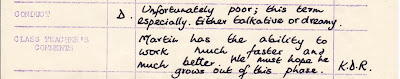 CONDUCT D. Unfortunately poor; this term
especially. Either talkative or dreamy.
CLASS TEACHER'S Martin has the ability to
COMMENTS work much faster and
much better. We must hope he
grows out of this phase. K.D.R.